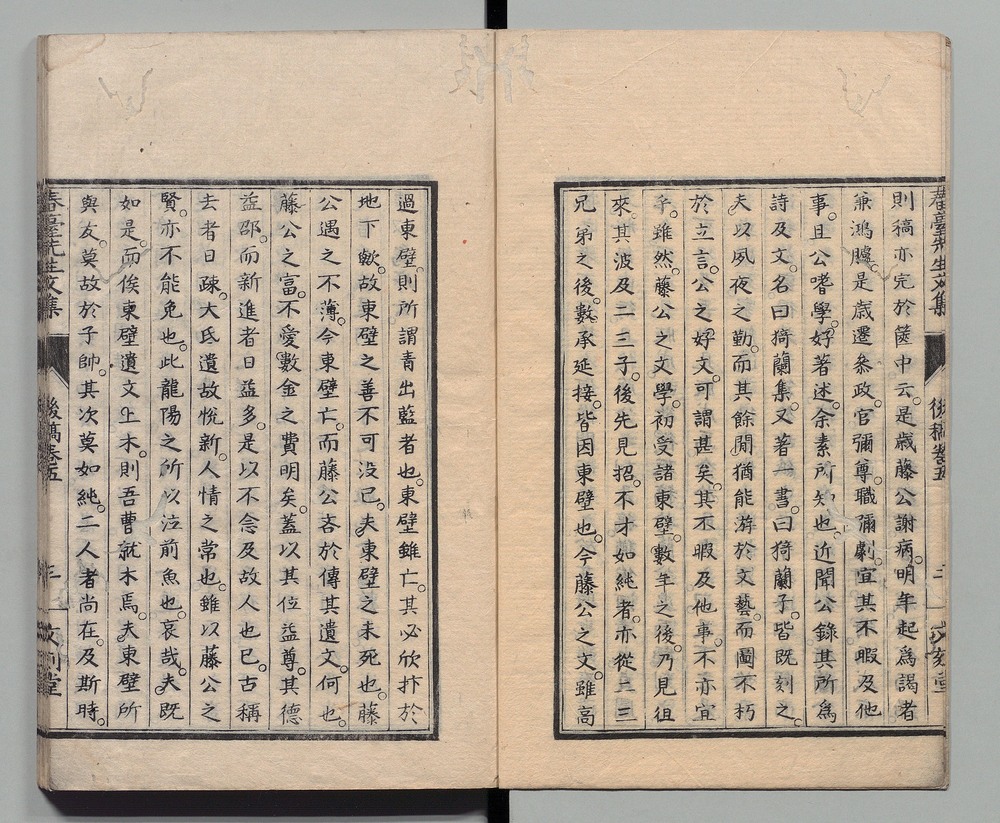 則稿亦完於篋中云。是歳藤公謝病。明年起爲謁者
兼鴻臚。是歳遷叅政。官彌尊。職彌劇。宜其不暇及他
事。且公嗜學。好著述。余素所知也。近聞公錄其所爲
詩及文。名曰猗蘭集。又著一書曰猗蘭子。皆既刻之。
夫以夙夜之勤。而其餘閒猶能游於文藝。而圖不朽
於立言。公之好文。可謂甚矣。其不暇及他事。不亦宜
乎。雖然。藤公之文學。初受諸東壁。數年之後。乃見徂
來。其波及二三子。後先見招。不才如純者。亦從二三
兄弟之後。數承延接。皆因東壁也。今藤公之文。雖高
過東壁。則所謂青出藍者也。東壁雖亡。其必欣抃於
地下歟。故東壁之善不可没已。夫東壁之未死也。藤
公遇之不薄。今東壁亡。而藤公吝於傳其遺文。何也。
藤公之富。不愛數金之費明矣。蓋以其位益尊。其德
益卲。而新進者日益多。是以不念及故人也已。古稱
去者日疎。大氐遺故悅新。人情之常也。雖以藤公之
賢。亦不能免也。此龍陽之所以泣前魚也。哀哉。夫既
如是。而俟東壁遺文上木。則吾曹就木焉。夫東壁所
與友。莫故於子帥。其次莫如純。二人者尚在。及斯時。
春臺先生文集
後稿卷五